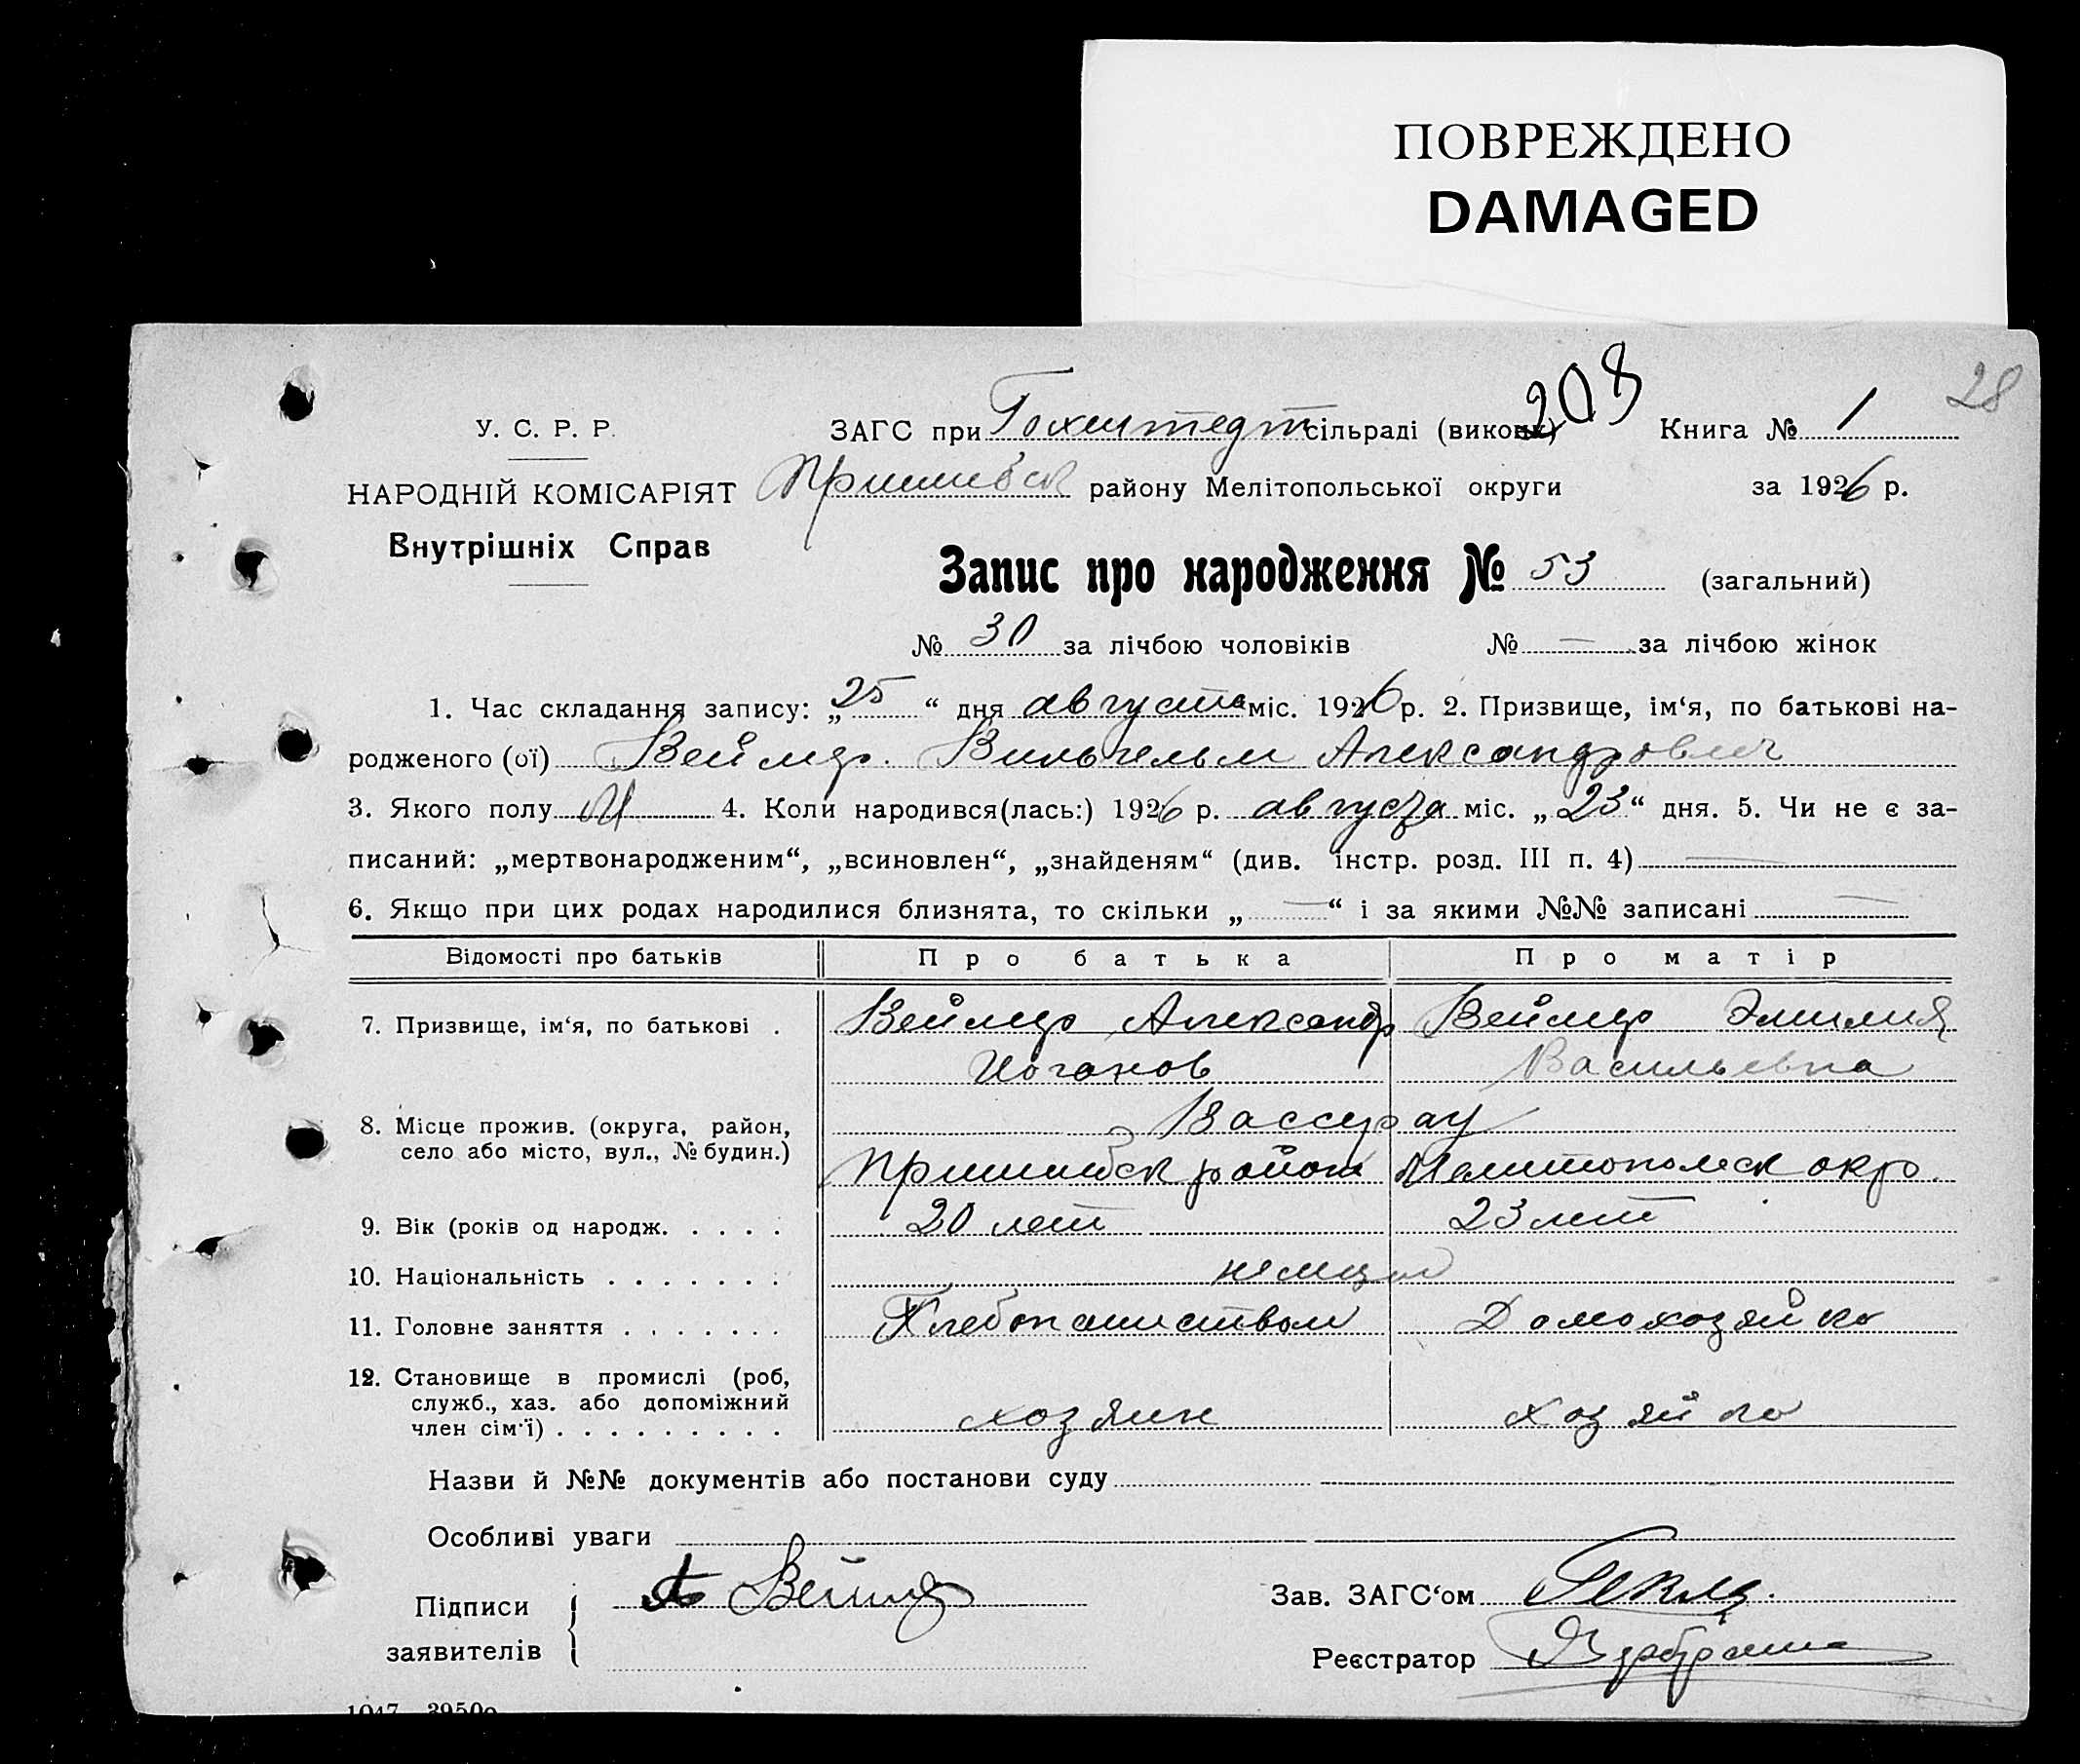 ПОВРЕЖДЕНО
DAMAGED
208
28
У. С. Р. Р. ЗАГС при Гохштедт сільраді (виконк) Книга № 1
НАРОДНІЙ КОМІСАРІЯТ Пришибск району Мелітопольської округи за 1926 р.
Внутрішніх Справ
Запис про народження № 53 (загальний)
№ 30 за лічбою чоловіків № — за лічбою жінок
1. Час складання запису: „25“ дня августа міс. 1926 р. 2. Призвище, ім‘я, по батькові на-
родженого (ої) Веймер Вильгельм Александрович
3. Якого полу М 4. Коли народився(лась:) 1926 р. августа міс. „23“ дня. 5. Чи не є за-
писаний: „мертвонародженим“, „всиновлен“, „знайденям“ (див. інстр. розд. III п. 4) —
6. Якщо при цих родах народилися близнята, то скільки „—“ і за якими №№ записані —
Відомості про батьків Про батька Про матір
7. Призвище, ім‘я, по батькові . Веймер Александр Веймер Эмилия
Иоганов Васильевна
8. Місце прожив. (округа, район, Вассерау
село або місто, вул., № будин.) Пришибск район Мелитопольск окр.
9. Вік (років од народж. . . . . 20 лет 23 лет
10. Національність . . . . . . . немцы
11. Головне заняття . . . . . . . Хлебопашеством Домохозяйка
12. Становище в промислі (роб,
служб., хаз. або допоміжний хозяин хозяйка
член сім‘ї) . . . . . . . . .
Назви й №№ документів або постанови суду
Особливі уваги
Підписи А Веймер Зав. ЗАГС‘ом
заявителів Реєстратор
1047 3950